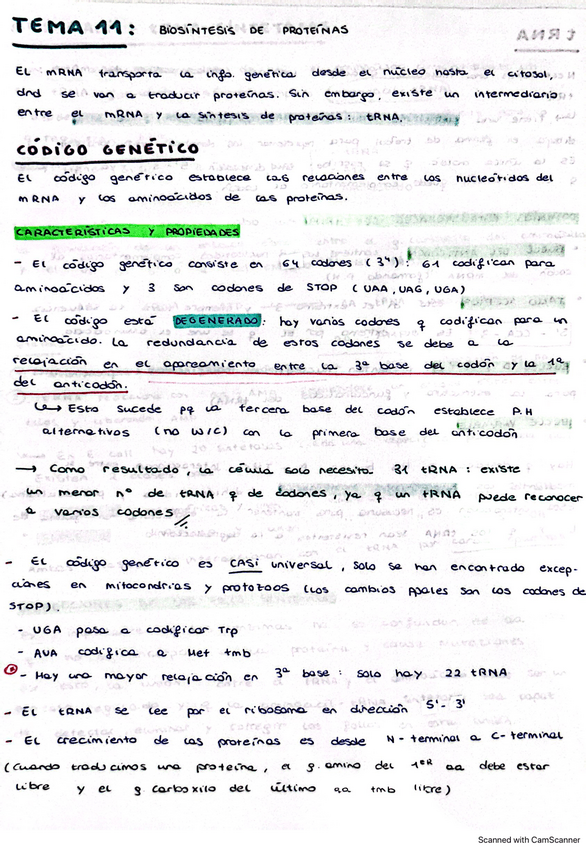 TEMA 11: BIOSÍNTESIS DE PROTEÍNAS
tRNA
El mRNA transporta la info. genética desde el núcleo hasta el citosol,
dnd se van a traducir proteínas. Sin embargo, existe un intermediario
entre el mRNA y la síntesis de proteínas: tRNA.
CÓDIGO GENÉTICO
El código genético establece las relaciones entre los nucleótidos del
mRNA y los aminoácidos de las proteínas.
CARACTERÍSTICAS Y PROPIEDADES
- El código genético consiste en 64 codones (3⁴): 61 codifican para
aminoácidos y 3 son codones de STOP (UAA, UAG, UGA)
- El código está DEGENERADO: hay varios codones q codifican para un
aminoácido. La redundancia de estos codones se debe a la
relajación en el apareamiento entre la 3ª base del codón y la 1ª
del anticodón.
↳ Esto sucede pq la tercera base del codón establece P.H
alternativos (no W/C) con la primera base del anticodón
→ Como resultado, la célula solo necesita 31 tRNA: existe
un menor nº de tRNA q de codones, ya q un tRNA puede reconocer
a varios codones
- El código genético es CASI universal, solo se han encontrado excep-
ciones en mitocondrias y protozoos (los cambios ppales son los codones de
STOP).
- UGA pasa a codificar Trp
- AUA codifica a Met tmb
- Hay una mayor relajación en 3ª base: solo hay 22 tRNA
- El tRNA se lee por el ribosoma en dirección 5'-3'
- El crecimiento de las proteínas es desde N-terminal a C-terminal
(Cuando traducimos una proteína, el g. amino del 1er aa debe estar
libre y el g. carboxilo del último aa tmb libre)
Scanned with CamScanner